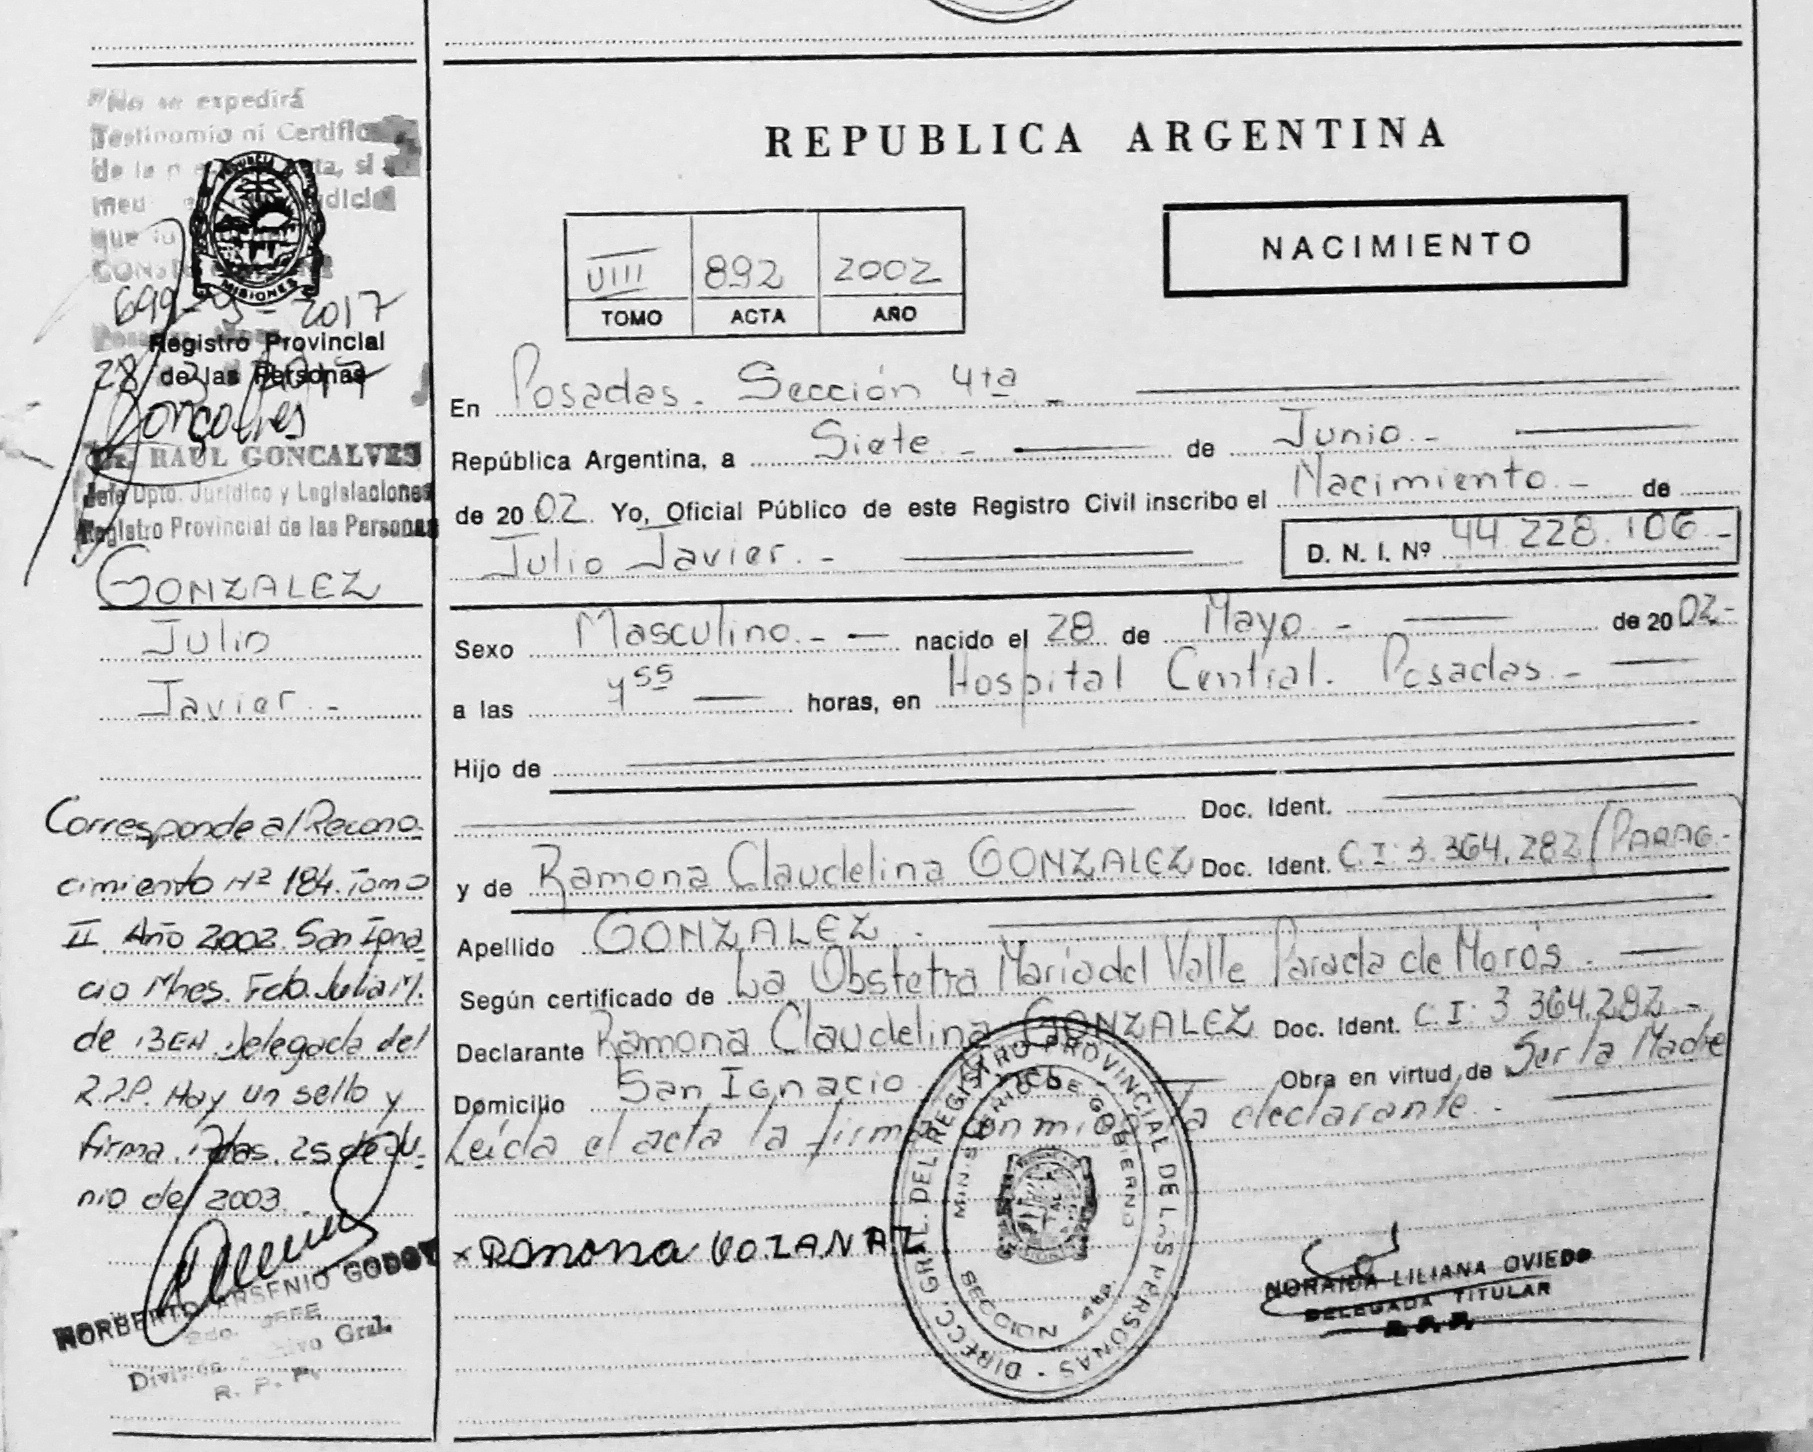 "No se expedirá
Testimonio ni Certific
de la p ta, si
med judicial
que lo
PROVINCIA
MISIONES
699-9-2017
Registro Provincial
de las Personas
28
Goncalves
Dr. RAUL GONCALVES
Jefe Dpto. Jurídico y Legislaciones
Registro Provincial de las Personas
GONZALEZ
Julio
Javier.-
Corresponde al Recono
cimiento Nº 184. Tomo
II Año 2002. San Igna
cio Mnes. Fdo. Julia M.
de BEN Delegada del
R.P.P. Hay un sello y
firma. Pdas. 25 de Ju-
nio de 2003.
NORBERTO ARSENIO GODOY
2do. JEFE
Archivo Gral.
R. P. P.
REPUBLICA ARGENTINA
VIII 892 2002
TOMO ACTA AÑO
NACIMIENTO
En Posadas. Sección 4ta -
República Argentina, a Siete - de Junio -
de 2002. Yo, Oficial Público de este Registro Civil inscribo el Nacimiento - de
Julio Javier. - D. N. I. Nº 44.228.106 -
Sexo Masculino - nacido el 28 de Mayo - de 2002-
a las 4 55 horas, en Hospital Central. Posadas -
Hijo de
Doc. Ident.
y de Ramona Claudelina GONZALEZ Doc. Ident. C.I: 3.364.282 (PARAG.
Apellido GONZALEZ.
Según certificado de La Obstetra María del Valle Parada de Morós.
Declarante Ramona Claudelina GONZALEZ Doc. Ident. C.I: 3.364.282 -
Domicilio San Ignacio. Mnes Obra en virtud de Ser la Madre
Leída el acta la firma conmigo la declarante.
x Ramona GOZANAZ
DIRECC. GRAL. DEL REGISTRO PROVINCIAL DE LAS PERSONAS
MINISTERIO DE GOBIERNO
SECCION 4ta.
NORAIDA LILIANA OVIEDO
DELEGADA TITULAR
R. P. P.